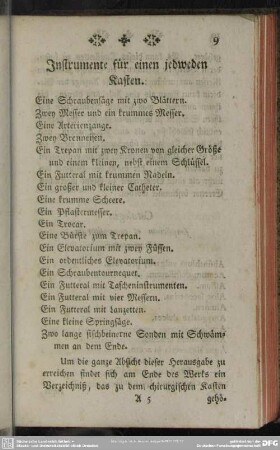 9
Instrumente für einen jedweden
Kasten.
Eine Schraubensäge mit zwo Blättern.
Zwey Messer und ein krummes Messer.
Eine Arterienzange.
Zwey Brenneisen.
Ein Trepan mit zwey Kronen von gleicher Größe
und einem kleinen, nebst einem Schlüssel.
Ein Futteral mit krummen Nadeln.
Ein grosser und kleiner Catheter.
Eine krumme Scheere.
Ein Pflastermesser.
Ein Trocar.
Eine Bürste zum Trepan.
Ein Elevatorium mit zwey Füssen.
Ein ordentliches Elevatorium.
Ein Schraubentournequet.
Ein Futteral mit Tascheninstrumenten.
Ein Futteral mit vier Messern.
Ein Futteral mit Lanzetten.
Eine kleine Springsäge.
Zwo lange fischbeinerne Sonden mit Schwäm-
men an dem Ende.
Um die ganze Absicht dieser Herausgabe zu
erreichen findet sich am Ende des Werks ein
Verzeichniß, das zu dem chirurgischen Kasten
A 5 gehö-